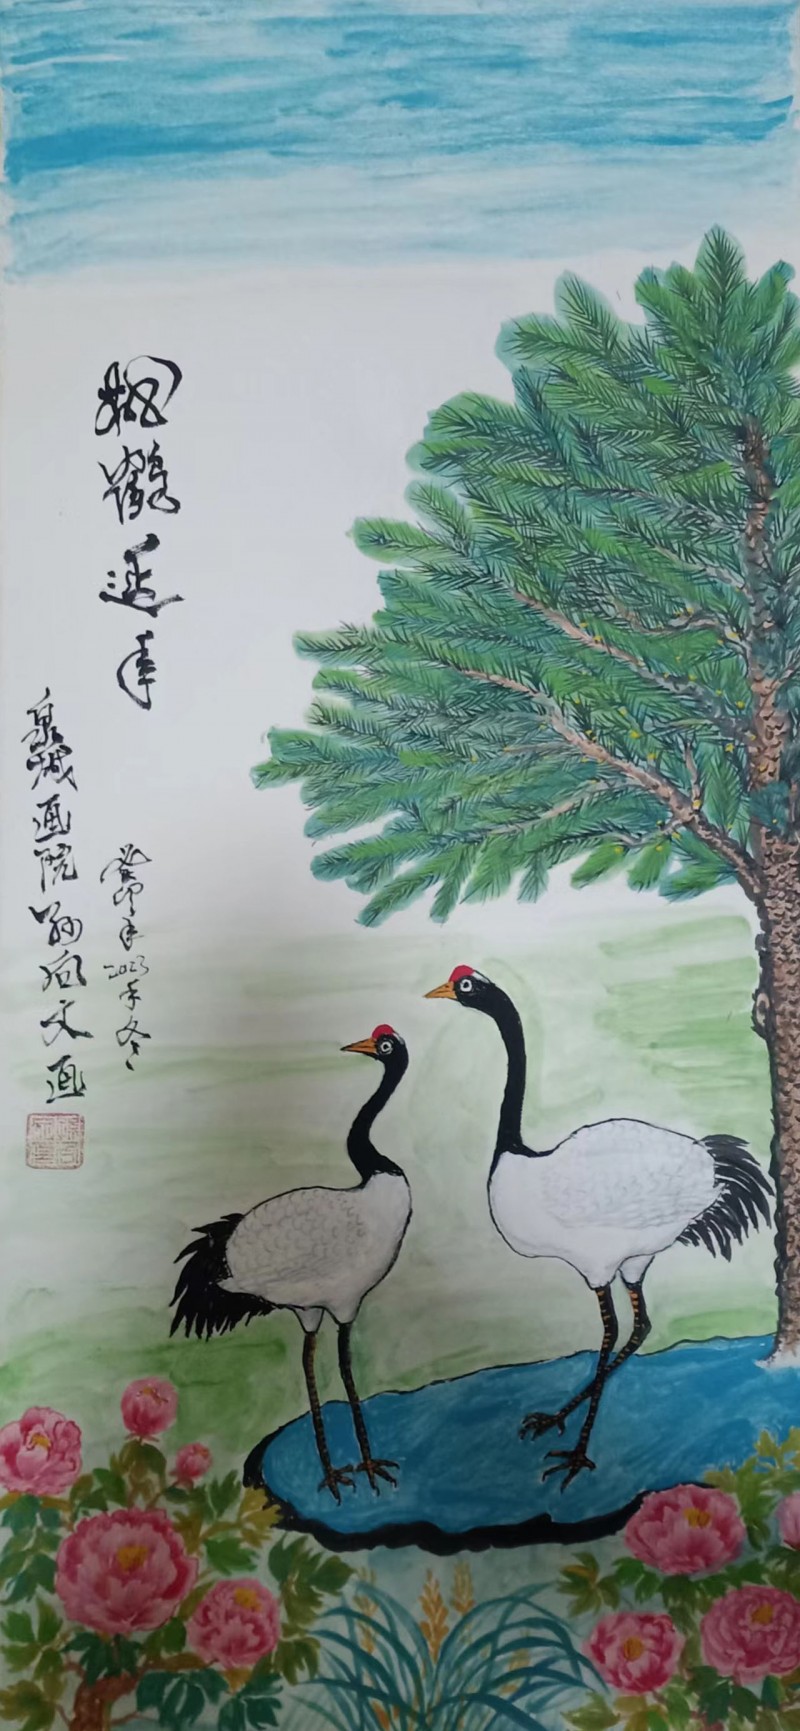 松鹤延年
癸卯年2023年冬
泉城画院孙向文画